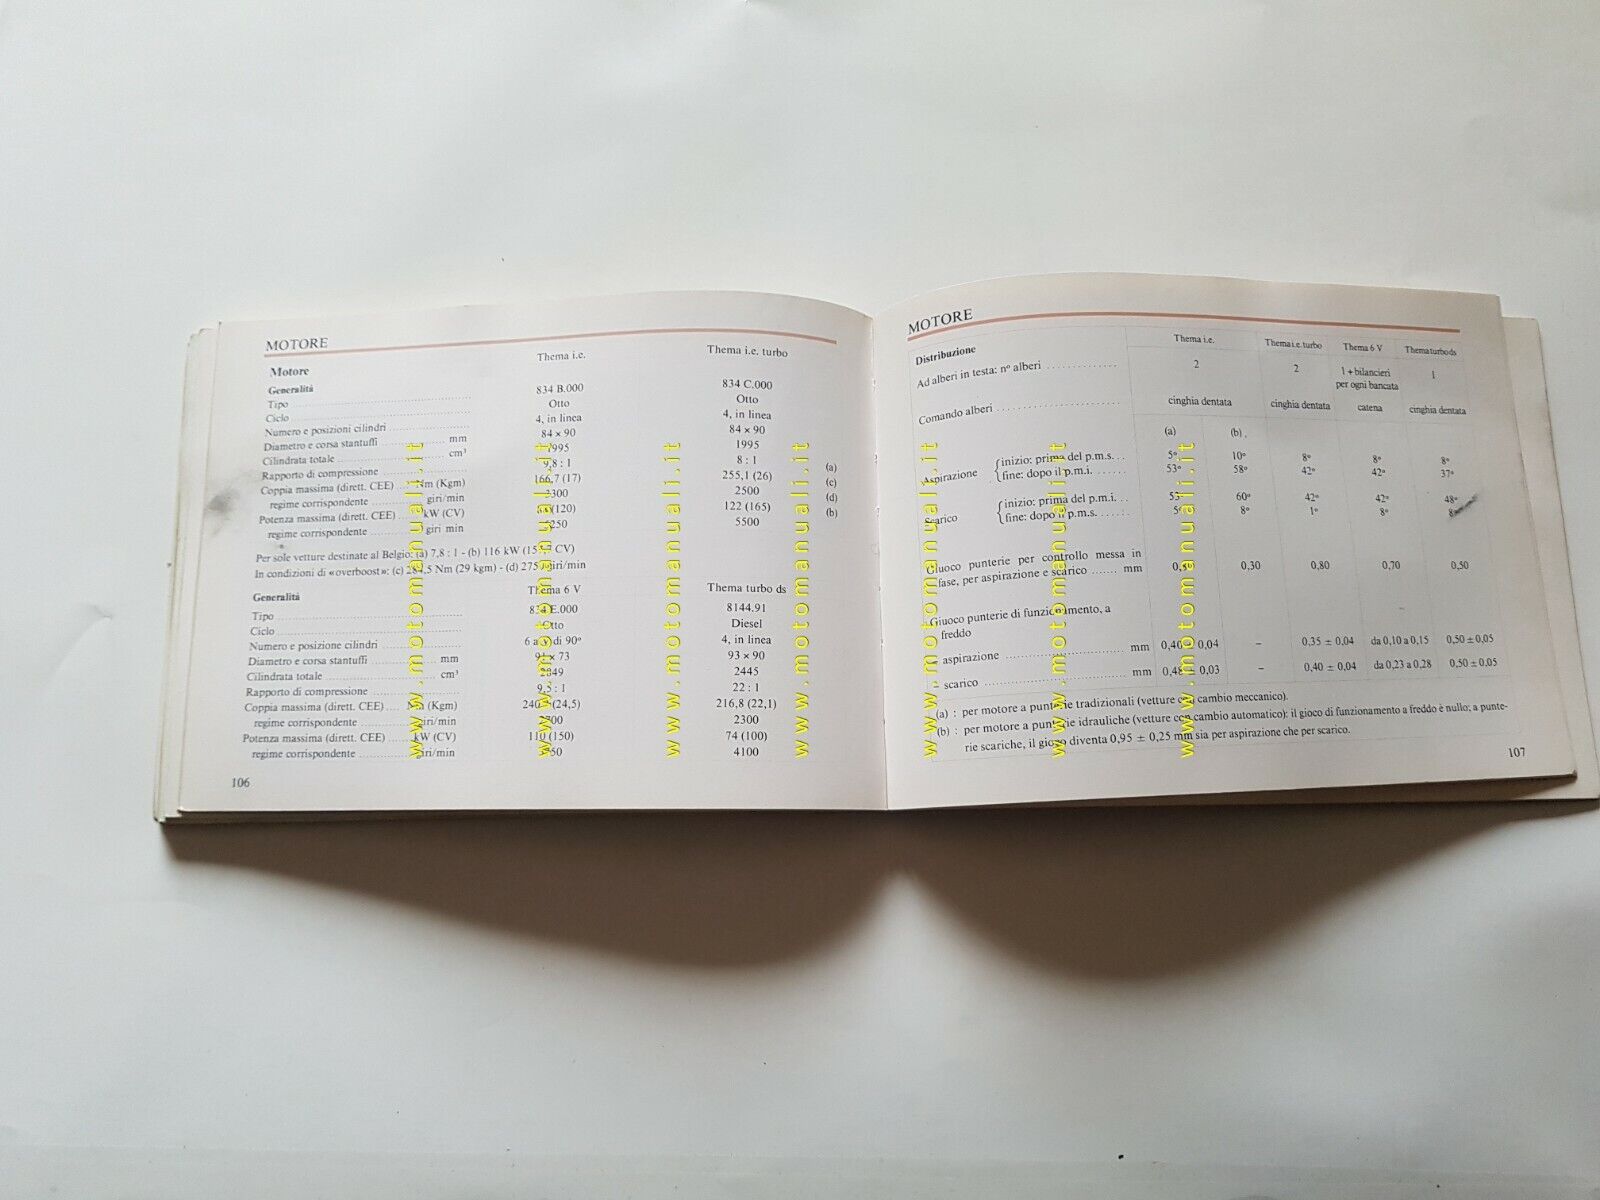 MOTORE
Motore
Thema i.e. Thema i.e. turbo
Generalità
Tipo 834 B.000 834 C.000
Ciclo Otto Otto
Numero e posizioni cilindri 4, in linea 4, in linea
Diametro e corsa stantuffi mm 84 × 90 84 × 90
Cilindrata totale cm³ 1995 1995
Rapporto di compressione 9,8 : 1 8 : 1 (a)
Coppia massima (dirett. CEE) Nm (Kgm) 166,7 (17) 255,1 (26) (c)
regime corrispondente giri/min 3300 2500 (d)
Potenza massima (dirett. CEE) kW (CV) (120) 122 (165) (b)
regime corrispondente giri min 5250 5500
Per sole vetture destinate al Belgio: (a) 7,8 : 1 - (b) 116 kW (157,7 CV)
In condizioni di «overboost»: (c) 284,5 Nm (29 kgm) - (d) 2750 giri/min
Generalità Thema 6 V Thema turbo ds
Tipo 834 E.000 8144.91
Ciclo Otto Diesel
Numero e posizione cilindri 6 a V di 90° 4, in linea
Diametro e corsa stantuffi mm 91 × 73 93 × 90
Cilindrata totale cm³ 2849 2445
Rapporto di compressione 9,5 : 1 22 : 1
Coppia massima (dirett. CEE) Nm (Kgm) (24,5) 216,8 (22,1)
regime corrispondente giri/min 2300
Potenza massima (dirett. CEE) kW (CV) 110 (150) 74 (100)
regime corrispondente giri/min 4100
106
MOTORE
Distribuzione Thema i.e. Thema i.e. turbo Thema 6 V Thema turbo ds
Ad alberi in testa: n° alberi 2 2 1 + bilancieri 1
per ogni bancata
Comando alberi cinghia dentata cinghia dentata catena cinghia dentata
(a) (b)
Aspirazione inizio: prima del p.m.s. 5° 10° 8° 8° 8°
fine: dopo il p.m.i. 53° 58° 42° 42° 37°
Scarico inizio: prima del p.m.i. 53° 60° 42° 42° 48°
fine: dopo il p.m.s. 5° 8° 1° 8° 8°
Giuoco punterie per controllo messa in
fase, per aspirazione e scarico mm 0,30 0,80 0,70 0,50
Giuoco punterie di funzionamento, a
freddo
– aspirazione mm 0,40 ± 0,04 – 0,35 ± 0,04 da 0,10 a 0,15 0,50 ± 0,05
– scarico mm 0,48 ± 0,03 – 0,40 ± 0,04 da 0,23 a 0,28 0,50 ± 0,05
(a) : per motore a punterie tradizionali (vetture con cambio meccanico).
(b) : per motore a punterie idrauliche (vetture con cambio automatico): il gioco di funzionamento a freddo è nullo; a punte-
rie scariche, il gioco diventa 0,95 ± 0,25 mm sia per aspirazione che per scarico.
107
www.motomanuali.it
www.motomanuali.it
www.motomanuali.it
www.motomanuali.it
www.motomanuali.it
www.motomanuali.it
www.motomanuali.it